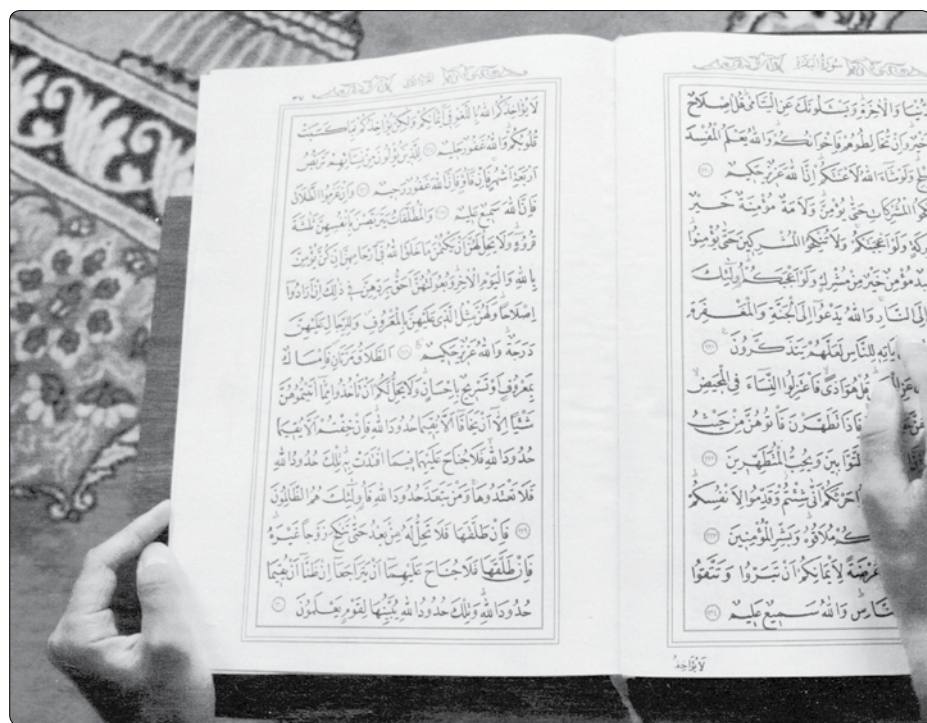 سُورَةُ الْبَقَرَةِ
وَالْاٰخِرَةِ وَيَسْـَٔلُونَكَ عَنِ الْيَتَامٰى قُلْ اِصْلَاحٌ
خَيْرٌ وَاِنْ تُخَالِطُوهُمْ فَاِخْوَانُكُمْ وَاللّٰهُ يَعْلَمُ الْمُفْسِدَ
وَلَوْ شَاءَ اللّٰهُ لَاَعْنَتَكُمْ اِنَّ اللّٰهَ عَزِيزٌ حَكِيمٌ ﴿٢٢٠﴾
الْمُشْرِكَاتِ حَتّٰى يُؤْمِنَّ وَلَاَمَةٌ مُؤْمِنَةٌ خَيْرٌ
وَلَوْ اَعْجَبَتْكُمْ وَلَا تُنْكِحُوا الْمُشْرِكِينَ حَتّٰى يُؤْمِنُوا
مُؤْمِنٌ خَيْرٌ مِنْ مُشْرِكٍ وَلَوْ اَعْجَبَكُمْ اُولٰئِكَ
اِلَى النَّارِ وَاللّٰهُ يَدْعُوا اِلَى الْجَنَّةِ وَالْمَغْفِرَةِ
اٰيَاتِهِ لِلنَّاسِ لَعَلَّهُمْ يَتَذَكَّرُونَ ﴿٢٢١﴾
عَنِ قُلْ هُوَ اَذًى فَاعْتَزِلُوا النِّسَاءَ فِي الْمَحِيضِ
فَاِذَا تَطَهَّرْنَ فَأْتُوهُنَّ مِنْ حَيْثُ
التَّوَّابِينَ وَيُحِبُّ الْمُتَطَهِّرِينَ ﴿٢٢٢﴾
حَرْثَكُمْ اَنّٰى شِئْتُمْ وَقَدِّمُوا لِاَنْفُسِكُمْ
مُلَاقُوهُ وَبَشِّرِ الْمُؤْمِنِينَ ﴿٢٢٣﴾
عُرْضَةً لِاَيْمَانِكُمْ اَنْ تَبَرُّوا وَتَتَّقُوا
النَّاسِ وَاللّٰهُ سَمِيعٌ عَلِيمٌ ﴿٢٢٤﴾
لَا يُؤَاخِذُ
٣٧
لَا يُؤَاخِذُكُمُ اللّٰهُ بِاللَّغْوِ فِي اَيْمَانِكُمْ وَلٰكِنْ يُؤَاخِذُكُمْ بِمَا كَسَبَتْ
قُلُوبُكُمْ وَاللّٰهُ غَفُورٌ حَلِيمٌ ﴿٢٢٥﴾ لِلَّذِينَ يُؤْلُونَ مِنْ نِسَائِهِمْ تَرَبُّصُ
اَرْبَعَةِ اَشْهُرٍ فَاِنْ فَاؤُ فَاِنَّ اللّٰهَ غَفُورٌ رَحِيمٌ ﴿٢٢٦﴾ وَاِنْ عَزَمُوا الطَّلَاقَ
فَاِنَّ اللّٰهَ سَمِيعٌ عَلِيمٌ ﴿٢٢٧﴾ وَالْمُطَلَّقَاتُ يَتَرَبَّصْنَ بِاَنْفُسِهِنَّ ثَلٰثَةَ
قُرُوءٍ وَلَا يَحِلُّ لَهُنَّ اَنْ يَكْتُمْنَ مَا خَلَقَ اللّٰهُ فِي اَرْحَامِهِنَّ اِنْ كُنَّ يُؤْمِنَّ
بِاللّٰهِ وَالْيَوْمِ الْاٰخِرِ وَبُعُولَتُهُنَّ اَحَقُّ بِرَدِّهِنَّ فِي ذٰلِكَ اِنْ اَرَادُوا
اِصْلَاحًا وَلَهُنَّ مِثْلُ الَّذِي عَلَيْهِنَّ بِالْمَعْرُوفِ وَلِلرِّجَالِ عَلَيْهِنَّ
دَرَجَةٌ وَاللّٰهُ عَزِيزٌ حَكِيمٌ ﴿٢٢٨﴾ اَلطَّلَاقُ مَرَّتَانِ فَاِمْسَاكٌ
بِمَعْرُوفٍ اَوْ تَسْرِيحٌ بِاِحْسَانٍ وَلَا يَحِلُّ لَكُمْ اَنْ تَأْخُذُوا مِمَّا اٰتَيْتُمُوهُنَّ
شَيْئًا اِلَّا اَنْ يَخَافَا اَلَّا يُقِيمَا حُدُودَ اللّٰهِ فَاِنْ خِفْتُمْ اَلَّا يُقِيمَا
حُدُودَ اللّٰهِ فَلَا جُنَاحَ عَلَيْهِمَا فِيمَا افْتَدَتْ بِهِ تِلْكَ حُدُودُ اللّٰهِ
فَلَا تَعْتَدُوهَا وَمَنْ يَتَعَدَّ حُدُودَ اللّٰهِ فَاُولٰئِكَ هُمُ الظَّالِمُونَ
﴿٢٢٩﴾ فَاِنْ طَلَّقَهَا فَلَا تَحِلُّ لَهُ مِنْ بَعْدُ حَتّٰى تَنْكِحَ زَوْجًا غَيْرَهُ
فَاِنْ طَلَّقَهَا فَلَا جُنَاحَ عَلَيْهِمَا اَنْ يَتَرَاجَعَا اِنْ ظَنَّا اَنْ يُقِيمَا
حُدُودَ اللّٰهِ وَتِلْكَ حُدُودُ اللّٰهِ يُبَيِّنُهَا لِقَوْمٍ يَعْلَمُونَ ﴿٢٣٠﴾